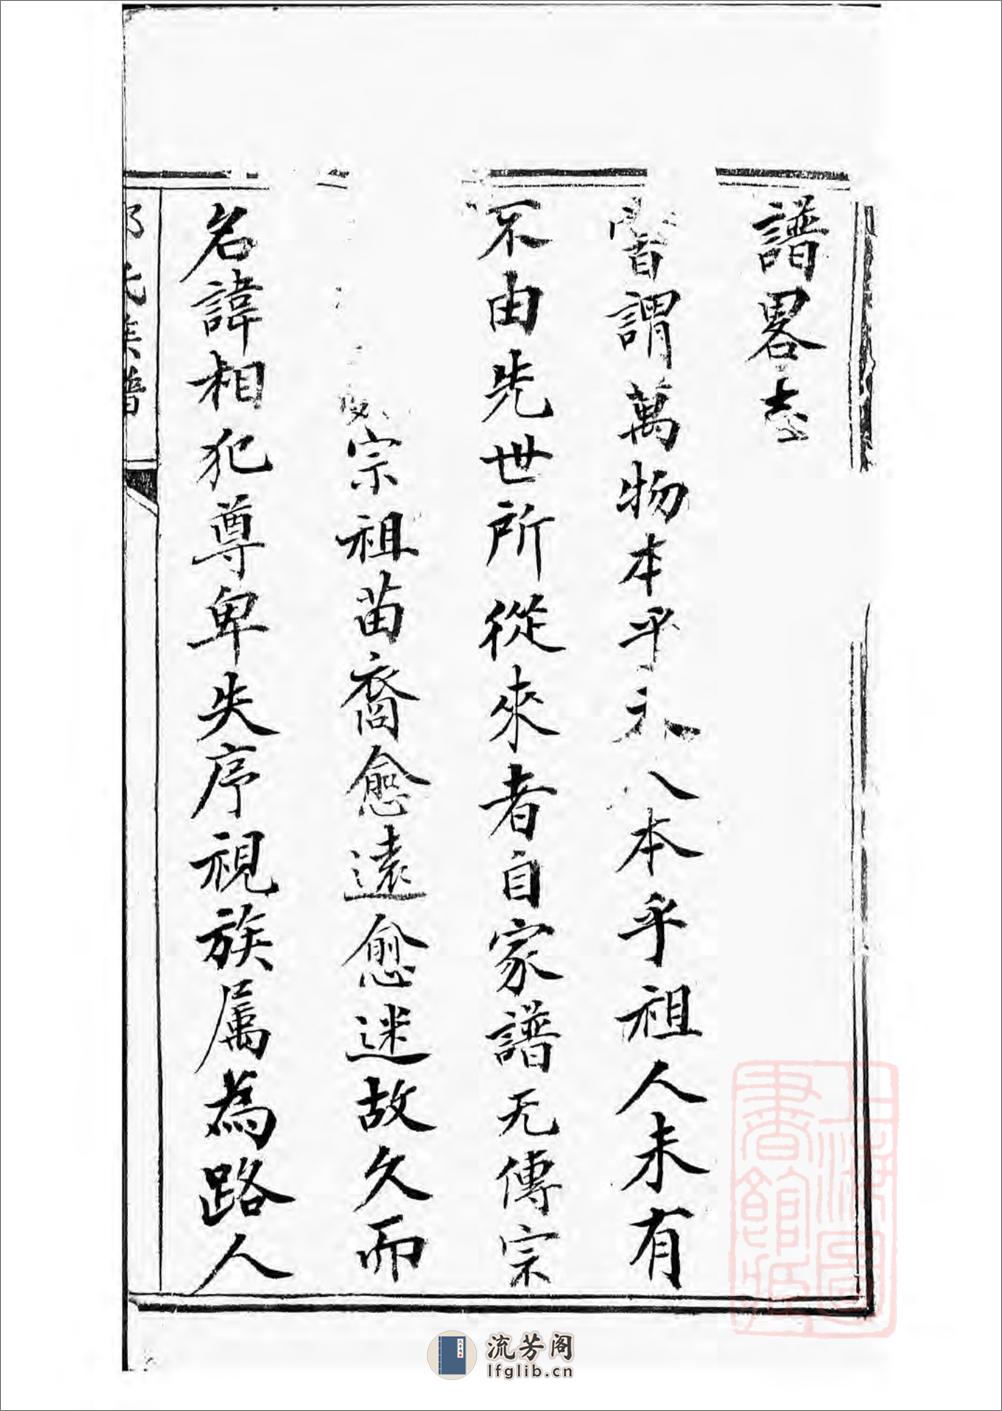 譜畧志
嘗謂萬物本乎天人本乎祖人未有
不由先世所從來者自家譜无傳宗
宗祖苗裔愈遠愈迷故久而
名諱相犯尊卑失序視族属為路人
氏族譜
上海圖書館藏
流芳阁
lfglib.cn